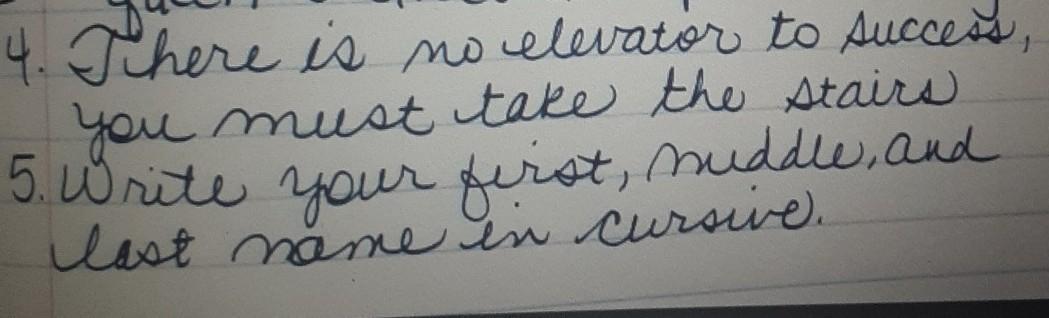 4. There is no elevator to success,
you must take the stairs
5. Write your first, middle, and
last name in cursive.